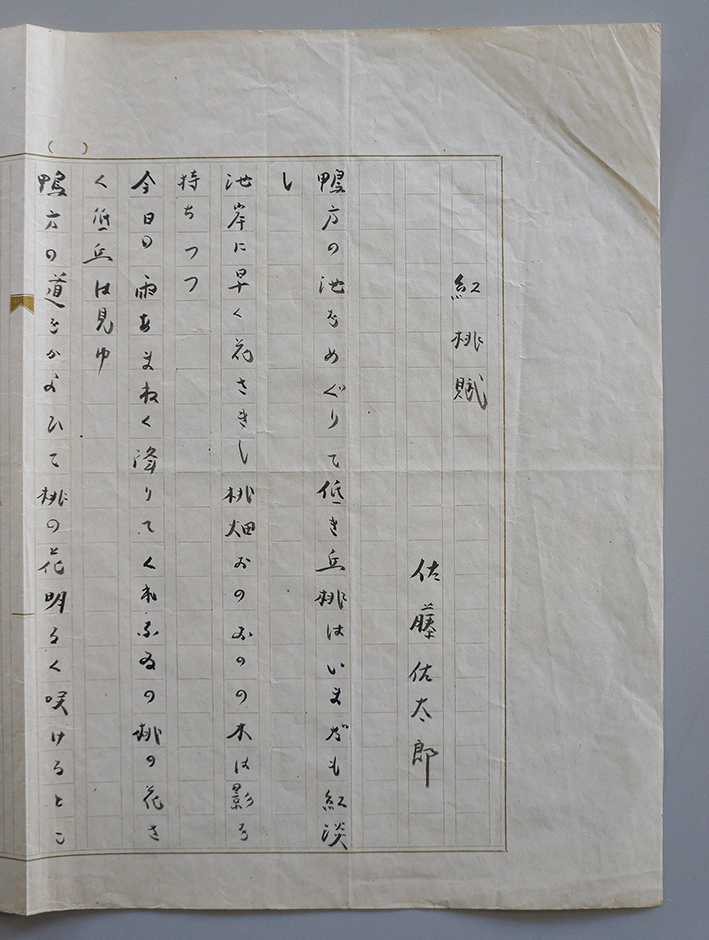 紅桃賦
佐藤佐太郎
鴨方の池をめぐりて低き丘桃はいまだも紅淡
し
池岸に早く花さきし桃畑おのおのの木は影を
持ちつつ
今日の雨あまねく降りてくれなゐの桃の花さ
く低丘は見ゆ
鴨方の道をかよひて桃の花明るく咲けるとこ